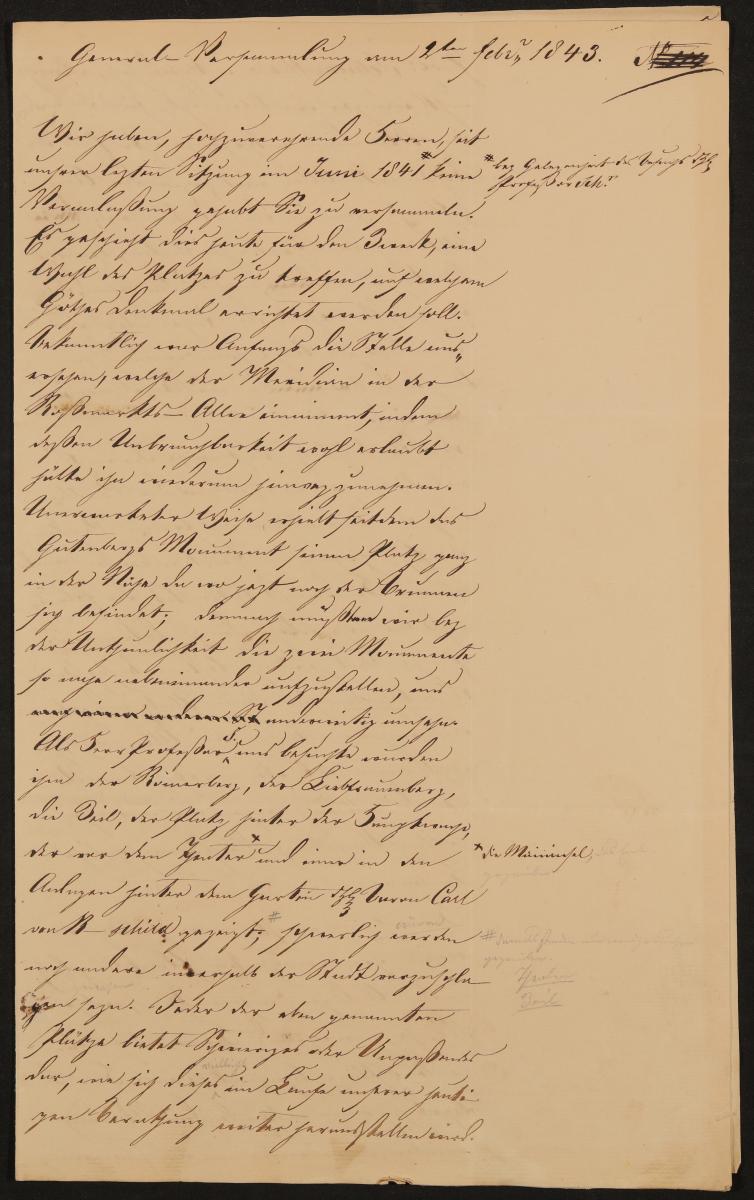 General-Versammlung am 2ten Febr 1843.
Wir haben, hochzuverehrende Herren, seit
unsrer lezten Sitzung im Juni 1841 # keine
# bey Gelegenheit des Besuchs des H
Professor Sch.
Veranlaßung gehabt Sie zu versammeln.
Es geschieht dies heute für den Zweck, eine
Wahl des Platzes zu treffen, auf welchem
Göthes Denkmal errichtet werden soll.
Bekanntlich war Anfangs die Stelle aus„
ersehen, welche der Meridian in der
Roßmarkts-Allee einnimmt, indem
deßen Unbrauchbarkeit wohl erlaubt
hätte ihn wiederum hinwegzunehmen.
Unerwarteter Weise erhielt seitdem das
Gutenbergs Monument seinen Platz ganz
in der Nähe da wo jezt noch der Brunnen
sich befindet; demnach mußten wir bey
der Unthunlichkeit die zwei Monumente
so nahe nebeneinander aufzustellen, uns
anderweitig umsehn.
Als Herr Professor S. uns besuchte wurden
ihm der Römerberg, der Liebfrauenberg,
die Zeil, der Platz hinter der Hauptwache,
der vor dem Theater x und einer in den
x die Maininsel,
Anlagen hinter dem Garten des H Baron Carl
von R-schild gezeigt; # schwerlich werden
noch andere innerhalb der Stadt vorzuschla-
gen seyn. Jeder der eben genannten
Theater
Zeil
Plätze bietet Schwieriges oder Unpaßendes
dar, wie sich dieses vielleicht im Laufe unserer heuti-
gen Berathung weiter herausstellen wird.